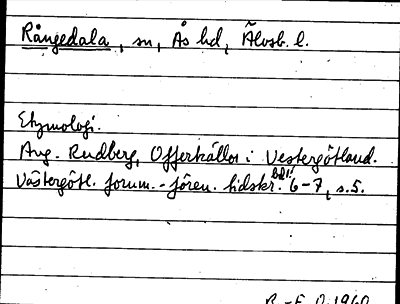 Rångedala, sn, Ås hd, Älvsb. l.
Etymologi.
Aug. Rudberg, Offerkällor i Vestergötland.
Västergötl. fornm.-fören. tidskr. bd I: 6-7, s. 5.
R.-E. O. 1960